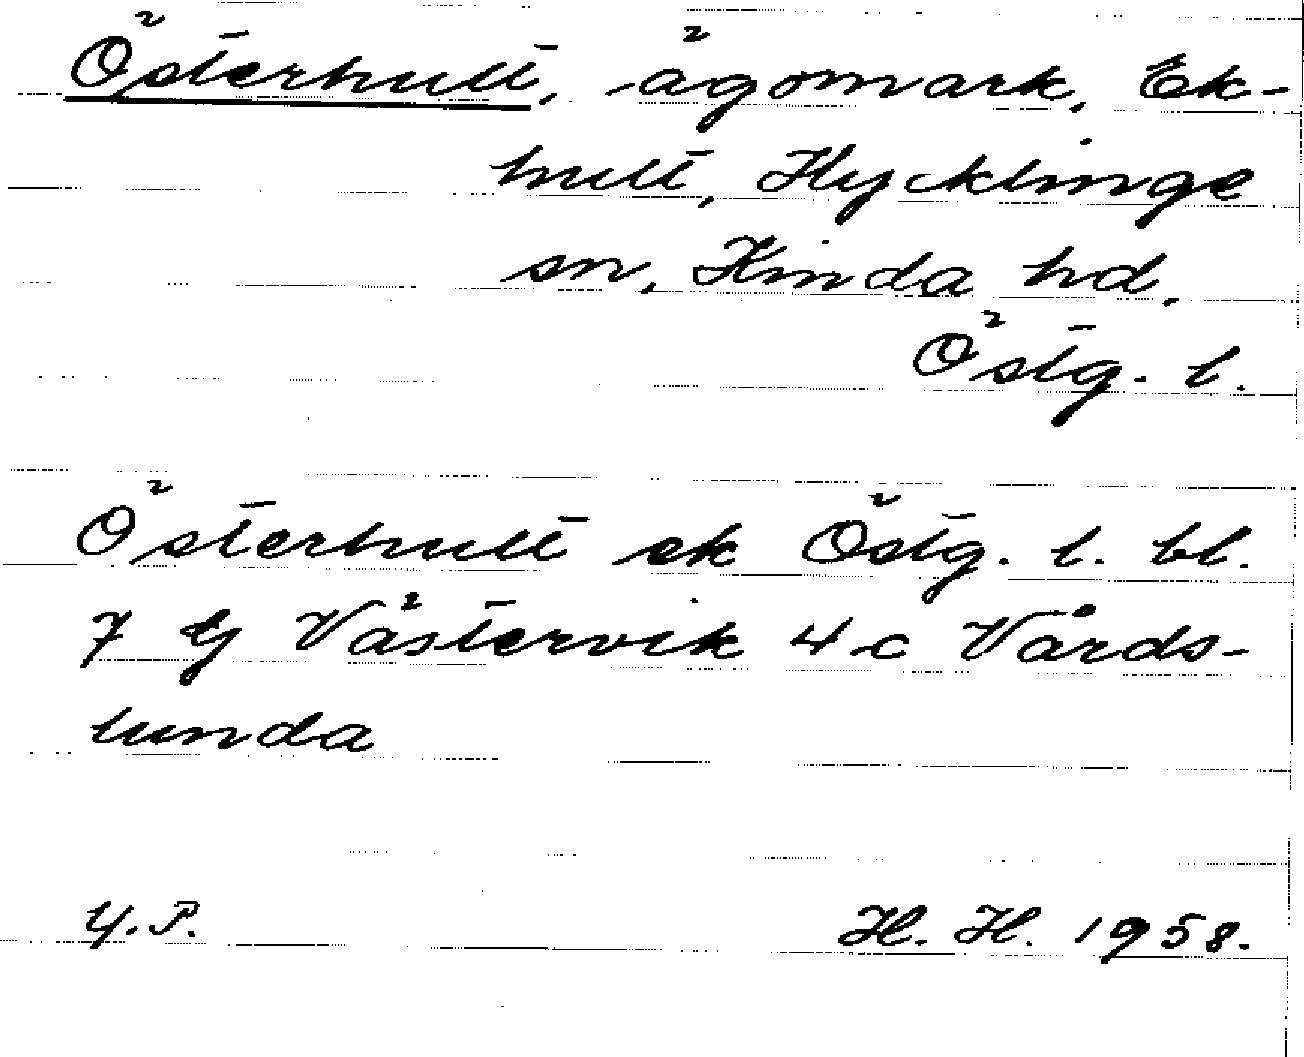 Österhult, ägomark, Ek-
hult, Hycklinge
sn, Kinda hd,
Östg. l.
Österhult ek Östg. l. bl.
7 G Västervik 4 c Vårds-
lunda
Y.P.
H. H. 1958.